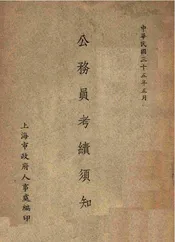 中華民國三十五年五月
公務員考績須知
上海市政府人事處編印